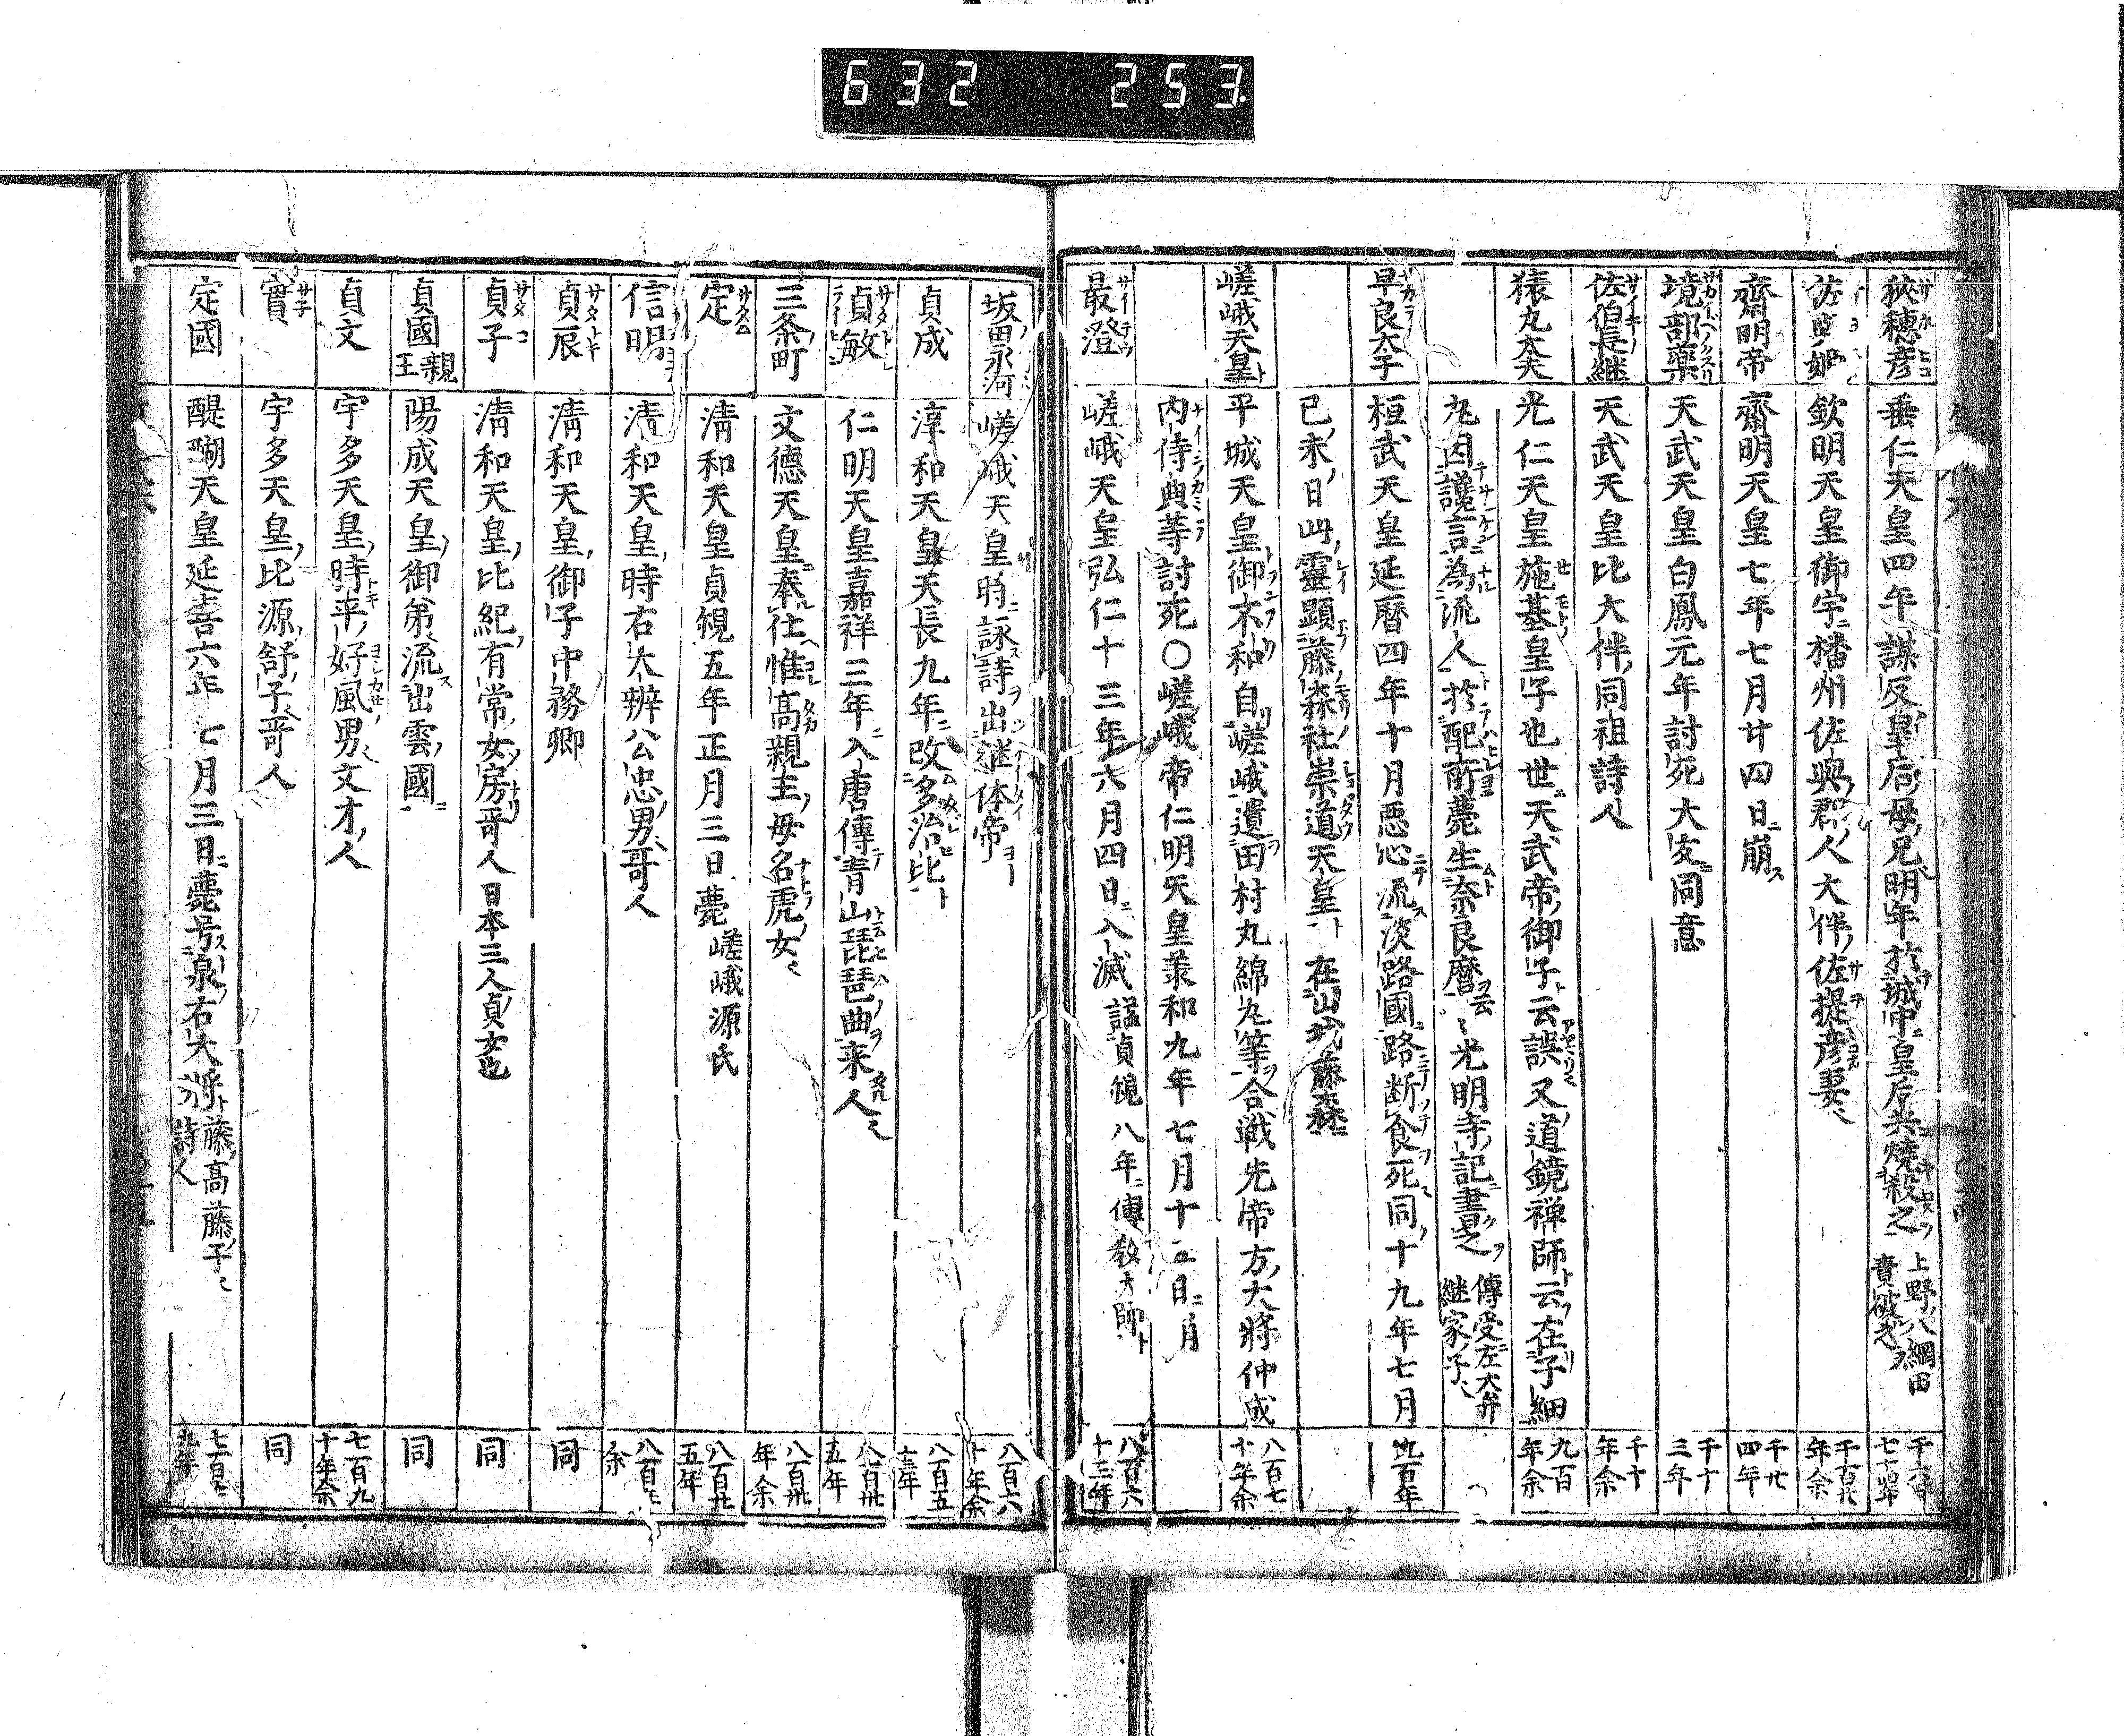 632 253
狹穂彦 垂仁天皇四年謀反皇后母兄明年於城中皇后共燒殺之 上野八綱田責破之
欽明天皇御宇檣州佐與郡人大伴佐提彦妻
齋明帝 齋明天皇七年七月廿四日崩 千廿四年
境部藥 天武天皇白鳳元年討死大友同意 千十三年
佐伯長継 天武天皇比大伴同祖詩人 千十年余
猿丸大夫 光仁天皇施基皇子也世天武帝御子云誤又道鏡禅師云在子細 九百年余
丸因讒言為流人於配所薨生奈良麿云〻光明寺記書之 傳受左大弁継家子
早良太子 桓武天皇延暦四年十月悪心流淡路國路断食死同十九年七月 九百年
已未日此靈顕藤森社崇道天皇 在山城藤森
嵯峨天皇 平城天皇御不和自嵯峨遺田村丸綿丸等合戦先帝方大將仲成 八百七十年余
内侍典等討死〇嵯峨帝仁明天皇義和九年七月十五日月
最澄 嵯峨天皇弘仁十三年六月四日入滅 謚貞観八年傳教大師 八百六十三年
坂田永河 嵯峨天皇時詠詩出継体帝 八百六十年余
貞成 淳和天皇天長九年改多治比
貞敏 仁明天皇嘉祥三年入唐傳青山琵琶曲来人 八百卅五年
三条町 文德天皇奉仕惟高親王母名虎女 八百卅年余
定 清和天皇貞観五年正月三日薨 嵯峨源氏 八百廿五年
信明 清和天皇時右大辨公忠男哥人
貞辰 清和天皇御子中務卿 同
貞子 清和天皇比紀有常女房哥人日本三人貞女也 同
貞國親王 陽成天皇御弟流出雲國 同
貞文 宇多天皇時平好風男文才人 七百九十年余
實 宇多天皇比源舒子哥人 同
定國 醍醐天皇延喜六年七月三日薨号泉右大将藤高藤子 詩人